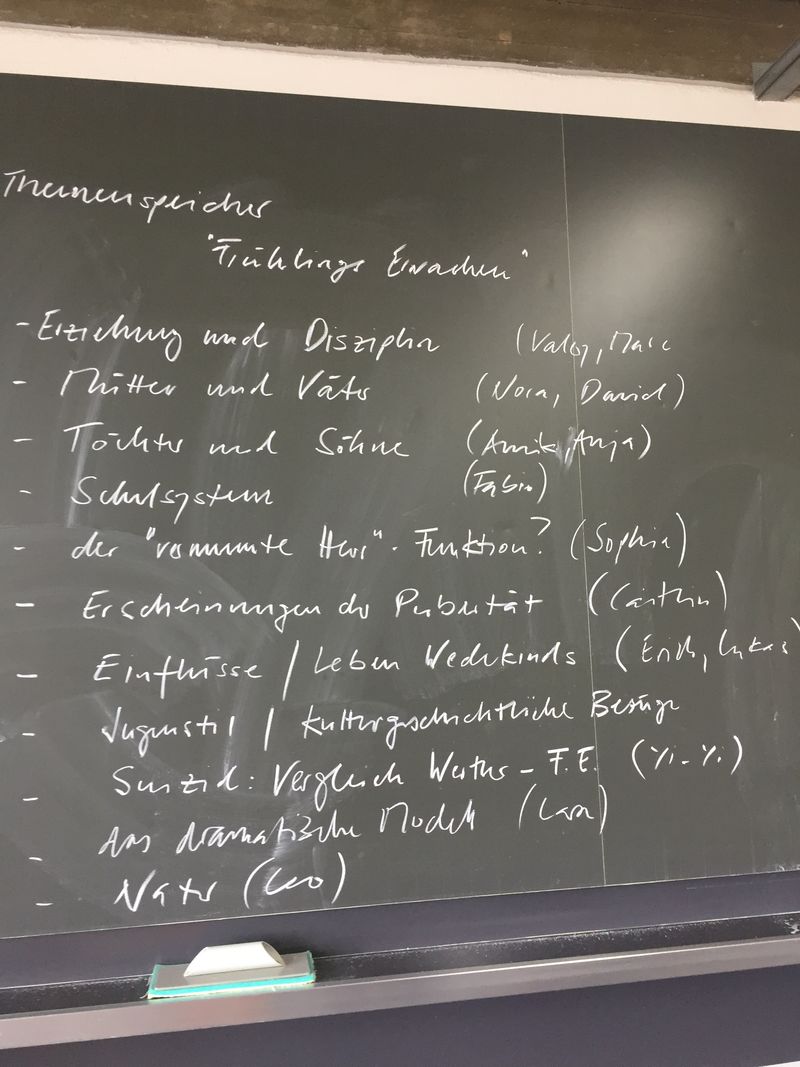 Themenspeicher
"Frühlings Erwachen"
- Erziehung und Disziplin (Marc
- Mütter und Väter (Nora, David)
- Töchter und Söhne (Annik, Anja)
- Schulsystem (Fabio)
- der "vermummte Herr". Funktion? (Sophia)
- Erscheinungen der Pubertät (Caithlin)
- Einflüsse / Leben Wedekinds (Erich, Lukas)
- Jugendstil / Kulturgeschichtliche Bezüge
- Suizid: Vergleich Werther - F.E. (Yi-Yi)
- das dramatische Modell (Lara)
- Natur (Leo)